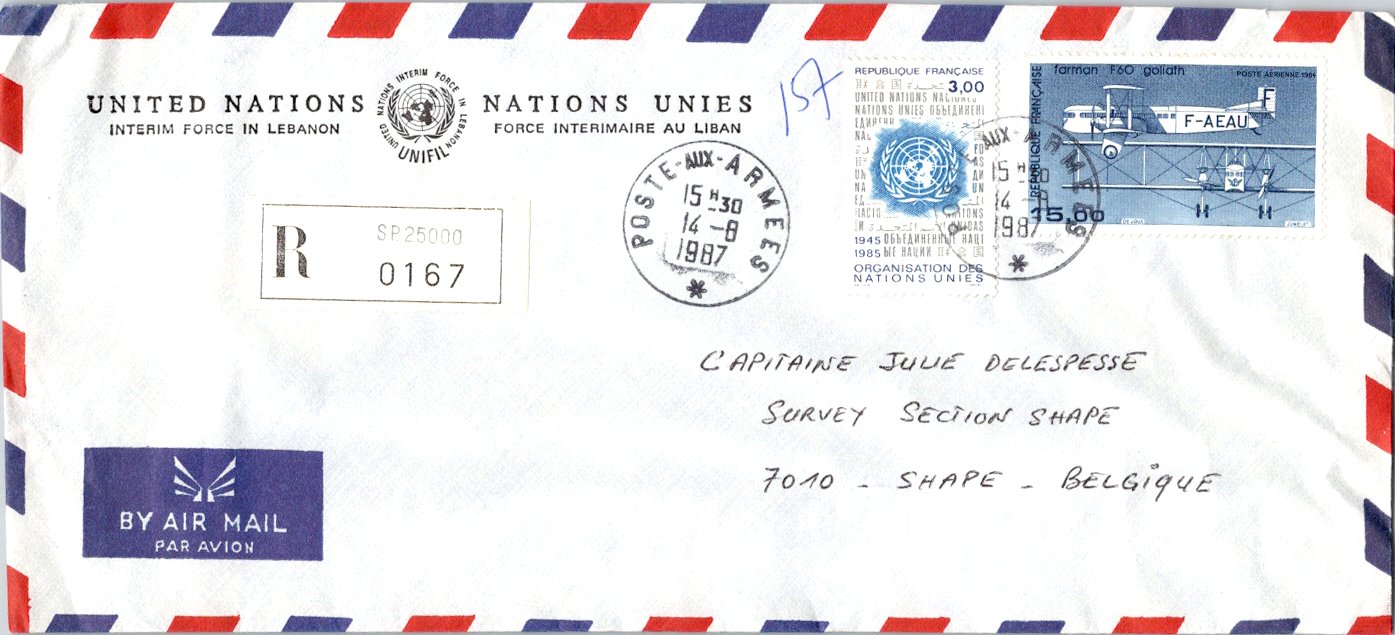 UNITED NATIONS
INTERIM FORCE IN LEBANON
UNITED NATIONS INTERIM FORCE IN LEBANON
UNIFIL
NATIONS UNIES
FORCE INTERIMAIRE AU LIBAN
157
REPUBLIQUE FRANÇAISE
3,00
UNITED NATIONS
NATIONS UNIES
1945
1985
ORGANISATION DES
NATIONS UNIES
farman F60 goliath
POSTE AERIENNE 1984
REPUBLIQUE FRANÇAISE
F-AEAU
F
15,00
POSTE-AUX-ARMEES
15H30
14-8
1987
*
AUX-ARMEES
15H30
14-8
1987
*
R
SP 25000
0167
CAPITAINE JULIE DELESPESSE
SURVEY SECTION SHAPE
7010 - SHAPE - BELGIQUE
BY AIR MAIL
PAR AVION